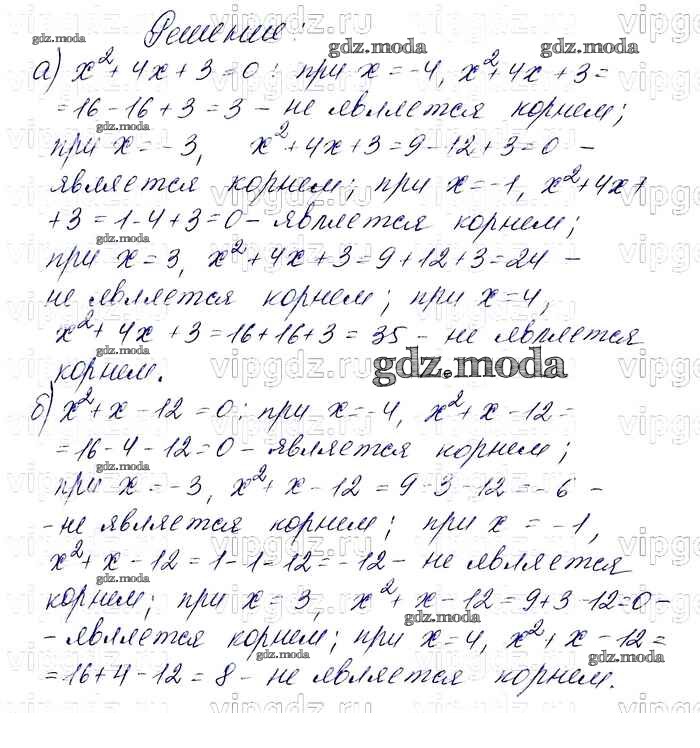 Решение:
а) x²+4x+3=0: при x=-4, x²+4x+3=
=16-16+3=3 - не является корнем;
при x=-3, x²+4x+3=9-12+3=0 -
является корнем; при x=-1, x²+4x+
+3=1-4+3=0 - является корнем;
при x=3, x²+4x+3=9+12+3=24 -
не является корнем; при x=4,
x²+4x+3=16+16+3=35 - не является
корнем.
gdz.moda
б) x²+x-12=0: при x=-4, x²+x-12=
=16-4-12=0 - является корнем;
при x=-3, x²+x-12=9-3-12=-6 -
- не является корнем; при x=-1,
x²+x-12=1-1-12=-12 - не является
корнем; при x=3, x²+x-12=9+3-12=0 -
- является корнем; при x=4, x²+x-12=
=16+4-12=8 - не является корнем.